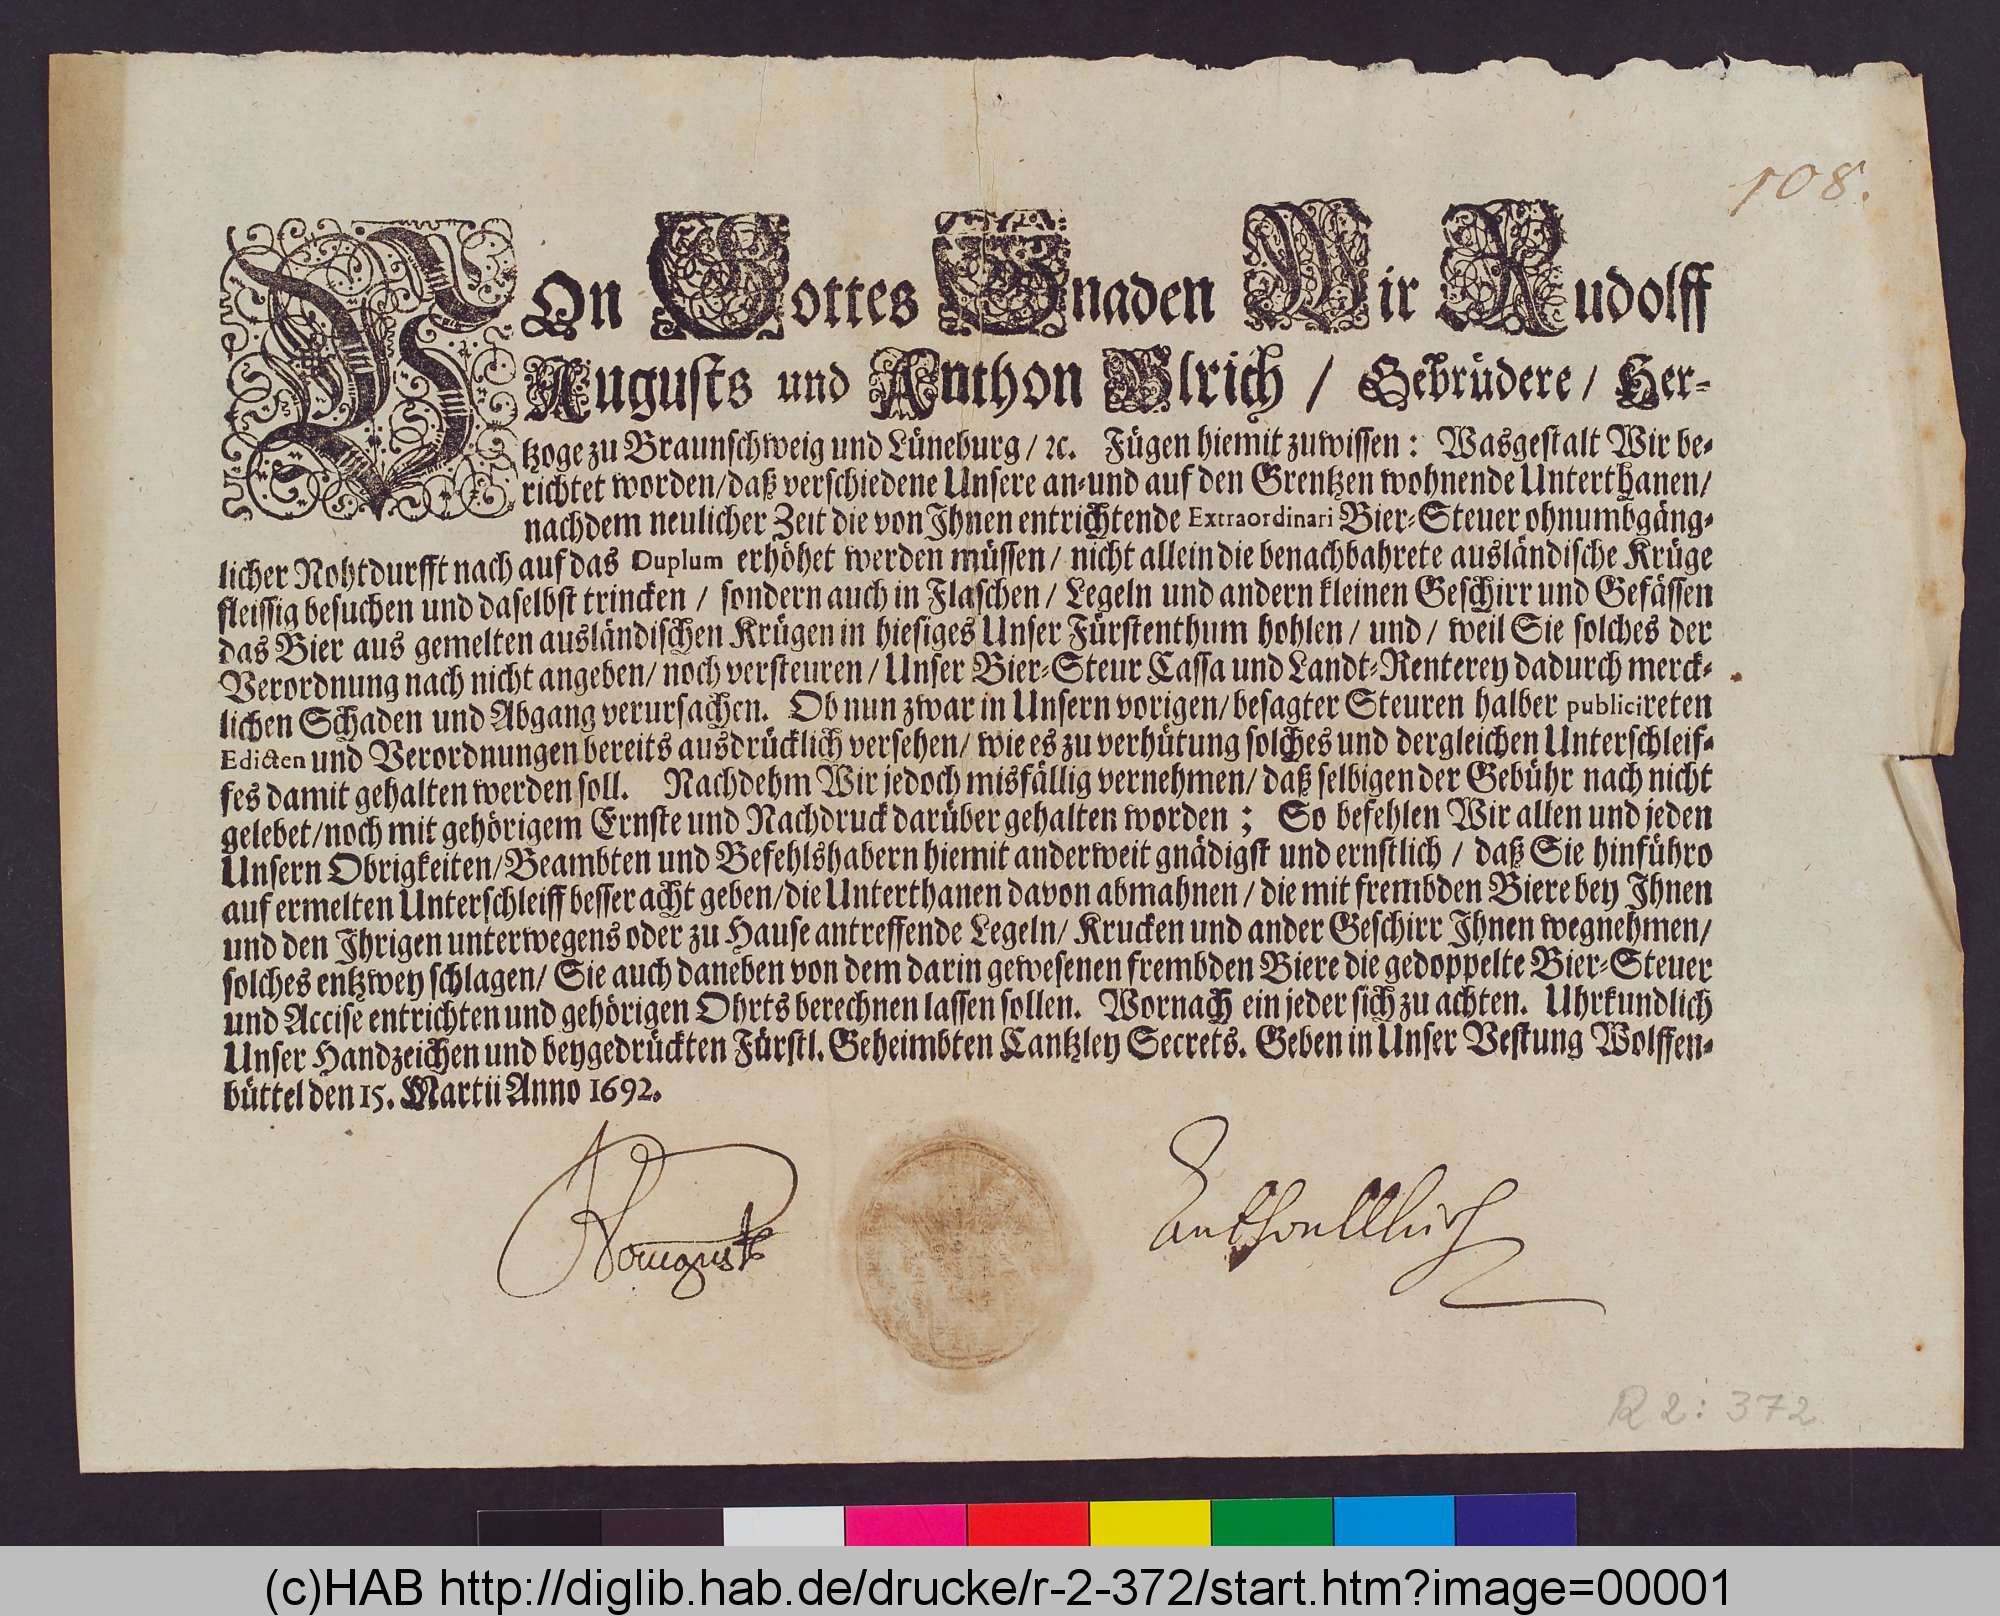 108.
VOn Gottes Gnaden Wir Rudolff
Augusts und Anthon Ulrich / Gebrüdere / Her-
tzoge zu Braunschweig und Lüneburg / ꝛc. Fügen hiemit zuwissen: Wasgestalt Wir be-
richtet worden/daß verschiedene Unsere an-und auf den Grentzen wohnende Unterthanen/
nachdem neulicher Zeit die von Ihnen entrichtende Extraordinari Bier-Steuer ohnumbgäng-
licher Nohtdurfft nach auf das Duplum erhöhet werden müssen/ nicht allein die benachbahrete ausländische Krüge
fleissig besuchen und daselbst trincken / sondern auch in Flaschen/ Legeln und andern kleinen Geschirr und Gefässen
das Bier aus gemelten ausländischen Krügen in hiesiges Unser Fürstenthum hohlen/ und/ weil Sie solches der
Verordnung nach nicht angeben/ noch versteuren/ Unser Bier-Steur Cassa und Landt-Renterey dadurch merck-
lichen Schaden und Abgang verursachen. Ob nun zwar in Unsern vorigen/ besagter Steuren halber publicireten
Edicten und Verordnungen bereits ausdrücklich versehen/ wie es zu verhütung solches und dergleichen Unterschleif-
fes damit gehalten werden soll. Nachdehm Wir jedoch misfällig vernehmen/ daß selbigen der Gebühr nach nicht
gelebet/noch mit gehörigem Ernste und Nachdruck darüber gehalten worden; So befehlen Wir allen und jeden
Unsern Obrigkeiten/Beambten und Befehlshabern hiemit anderweit gnädigst und ernstlich / daß Sie hinführo
auf ermelten Unterschleiff besser acht geben/die Unterthanen davon abmahnen/ die mit frembden Biere bey Ihnen
und den Ihrigen unterwegens oder zu Hause antreffende Legeln/ Krucken und ander Geschirr Ihnen wegnehmen/
solches entzwey schlagen/ Sie auch daneben von dem darin gewesenen frembden Biere die gedoppelte Bier-Steuer
und Accise entrichten und gehörigen Ohrts berechnen lassen sollen. Wornach ein jeder sich zu achten. Uhrkundlich
Unser Handzeichen und beygedrückten Fürstl. Geheimbten Cantzley Secrets. Geben in Unser Vestung Wolffen-
büttel den 15. Martii Anno 1692.
RAugustz
AnthonUlrich
R 2: 372
(c)HAB http://diglib.hab.de/drucke/r-2-372/start.htm?image=00001